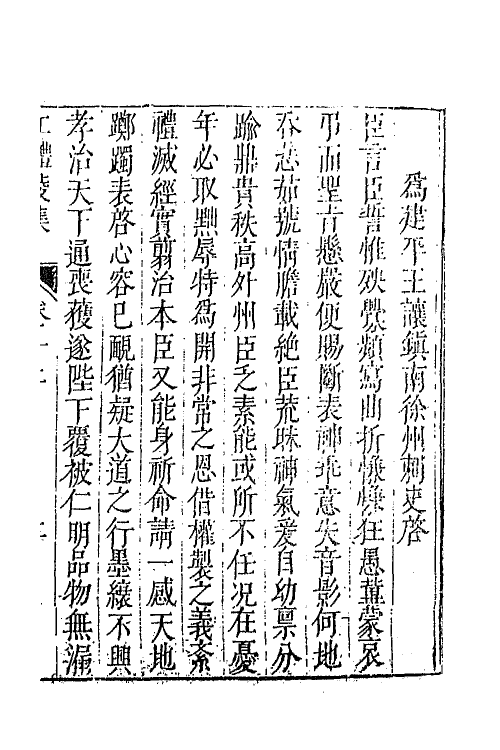 爲建平王讓鎮南徐州刺史啓
臣言臣誓惟殃釁頻寫曲折慊慊狂愚冀蒙哀
弔而聖旨懸嚴便賜斷表神乖意失音影何地
吞悲茹號情膽載絶臣荒昧神氣爰自幼禀分
踰鼎貴秩高外州臣乏素能或所不任况在憂
年必取黜辱特爲開非常之恩借權製之義紊
禮滅經實翦治本臣又能身祈命請一感天地
躑躅表啓心容已靦猶疑大道之行墨縗不興
孝治天下通喪獲遂陛下覆被仁明品物無漏
江醴陵集